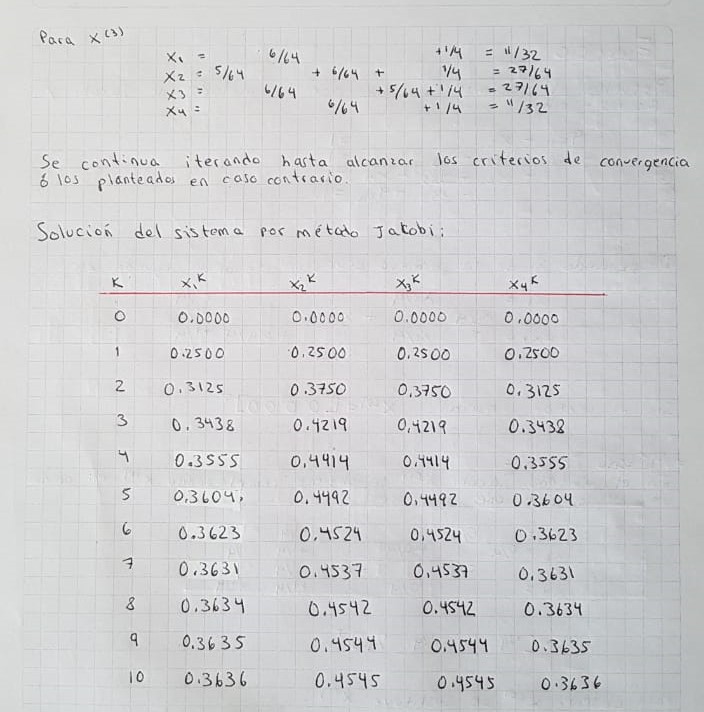 Para x⁽³⁾
x₁ = 6/64 +1/4 = 11/32
x₂ = 5/64 + 6/64 + 1/4 = 27/64
x₃ = 6/64 +5/64 +1/4 = 27/64
x₄ = 6/64 +1/4 = 11/32
Se continua iterando hasta alcanzar los criterios de convergencia
ó los planteados en caso contrario.
Solucion del sistema por método Jakobi:
K x₁ᴷ x₂ᴷ x₃ᴷ x₄ᴷ
0 0.0000 0.0000 0.0000 0.0000
1 0.2500 0.2500 0.2500 0.2500
2 0.3125 0.3750 0.3750 0.3125
3 0.3438 0.4219 0.4219 0.3438
4 0.3555 0.4414 0.4414 0.3555
5 0.3604 0.4492 0.4492 0.3604
6 0.3623 0.4524 0.4524 0.3623
7 0.3631 0.4537 0.4537 0.3631
8 0.3634 0.4542 0.4542 0.3634
9 0.3635 0.4544 0.4544 0.3635
10 0.3636 0.4545 0.4545 0.3636